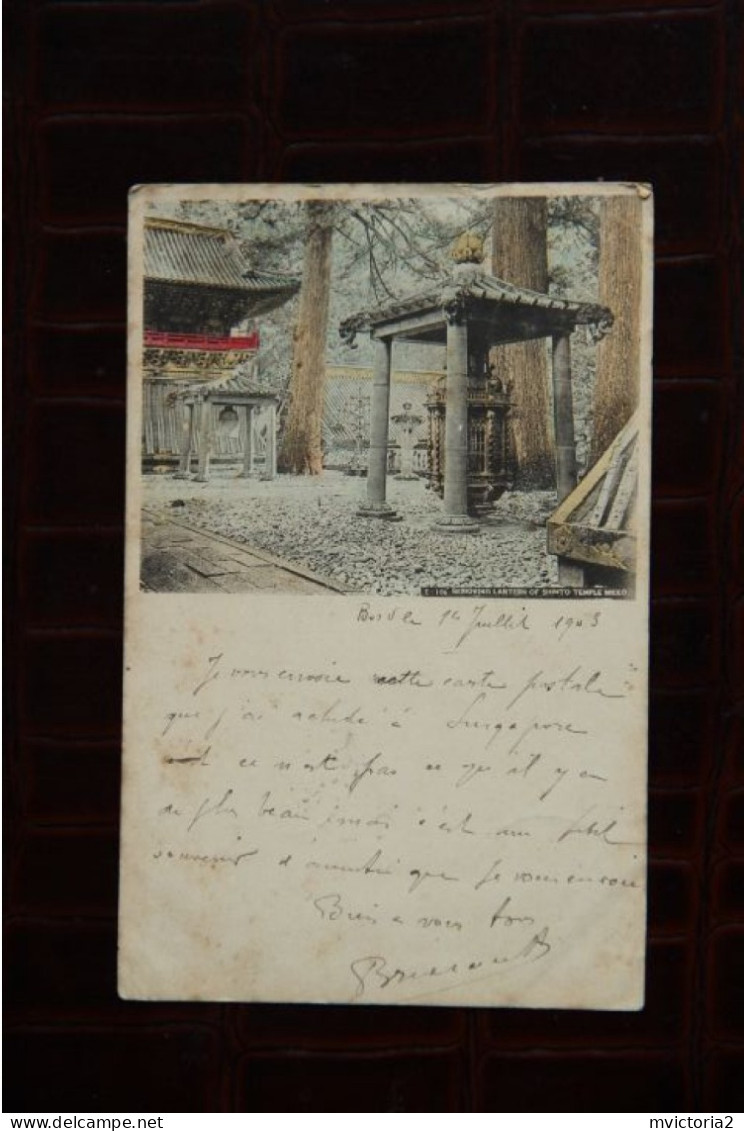 REVOLVING LANTERN OF SHINTO TEMPLE NIKKO
Bord le 14 Juillet 1903
Je vous envoie cette carte postale
que j'ai acheté à Singapore
ce n'est pas ce qu'il y en
a de plus beau mais c'est un petit
souvenir d'amitié que Je vous envoie
Bien a vous tous
delcampe.net
mvictoria2